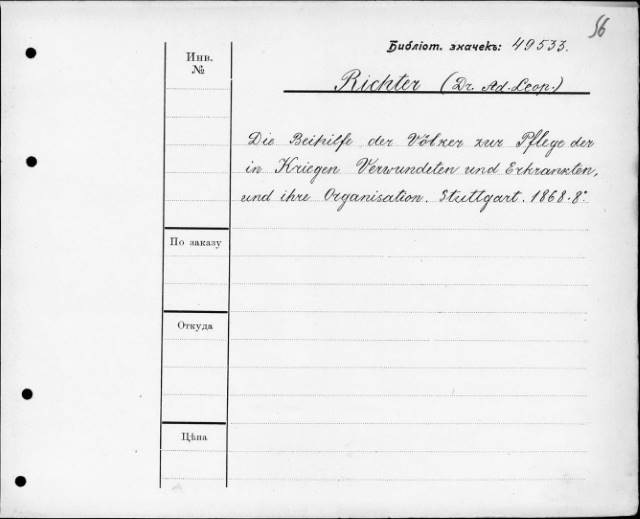 56
Библіот. значекъ: 49533.
Инв.
№
Richter (Dr. Ad. Leop.)
Die Beihilfe der Völker zur Pflege der
in Kriegen Verwundeten und Erkrankten,
und ihre Organisation. Stuttgart. 1868. 8°.
По заказу
Откуда
Цѣна